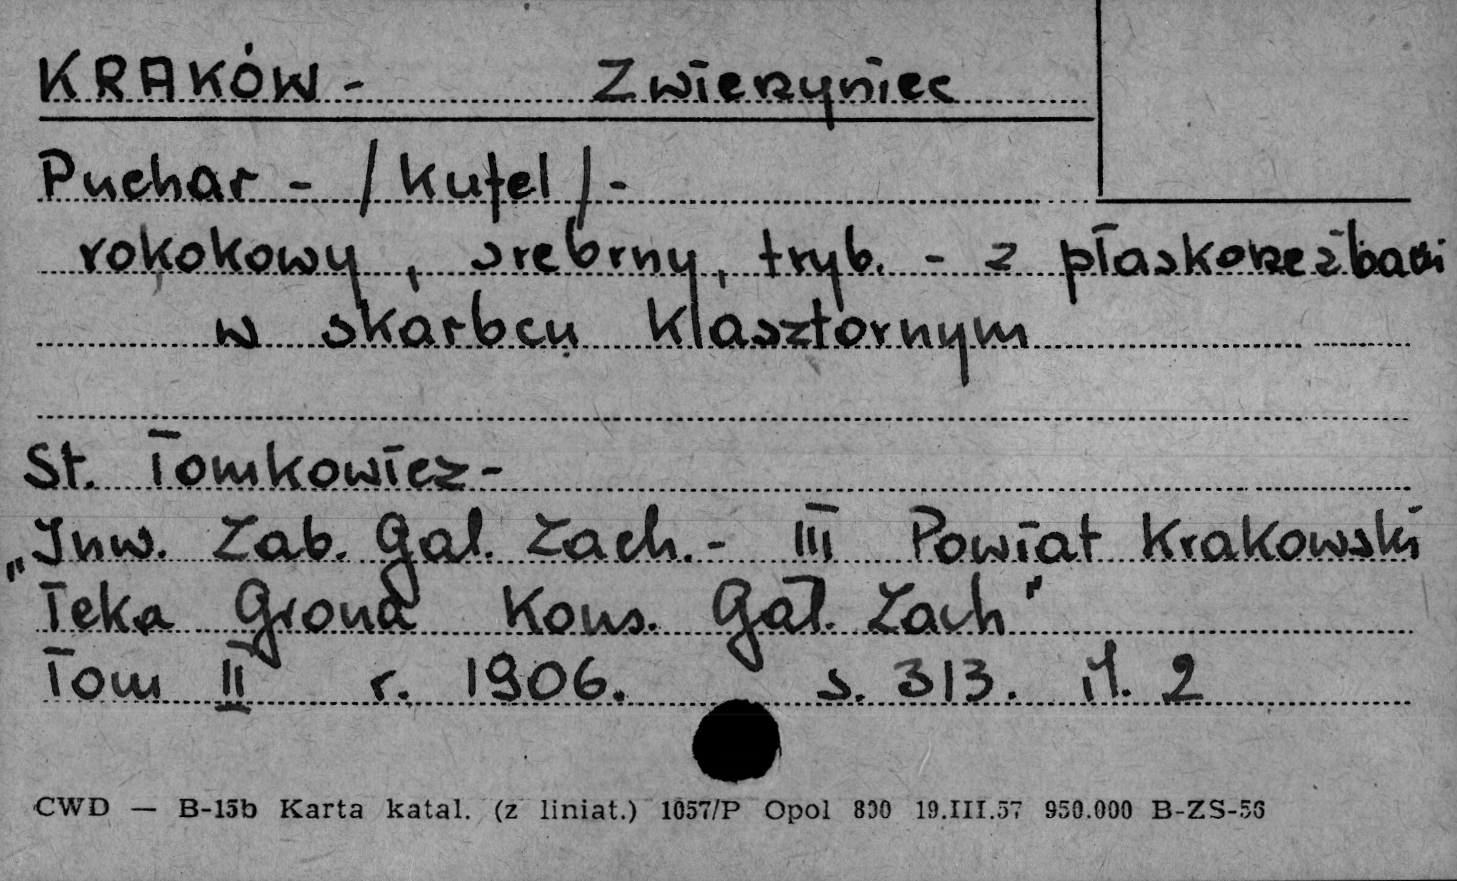 KRAKÓW - Zwierzyniec
Puchar - /kufel/ -
rokokowy, srebrny, tryb. - z płaskorzeźbami
w skarbcu klasztornym
St. Tomkowicz -
„Inw. Zab. Gal. Zach. - III Powiat Krakowski
Teka Grona Kons. Gal. Zach"
Tom II r. 1906. s. 313. il. 2
CWD — B-15b Karta katal. (z liniat.) 1057/P Opol 800 19.III.57 950.000 B-ZS-56